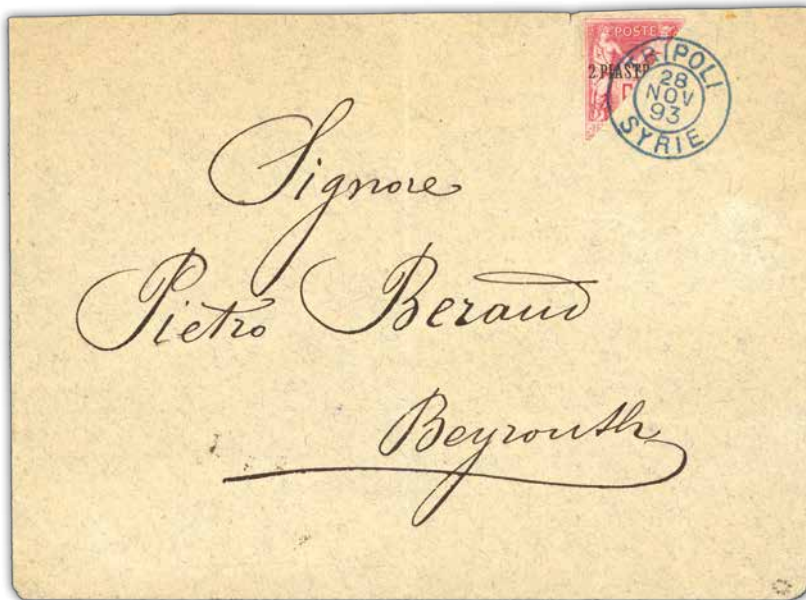 POSTE
2 PIAST
TRIPOLI
28
NOV
93
SYRIE
Signore
Pietro Beraud
Beyrouth